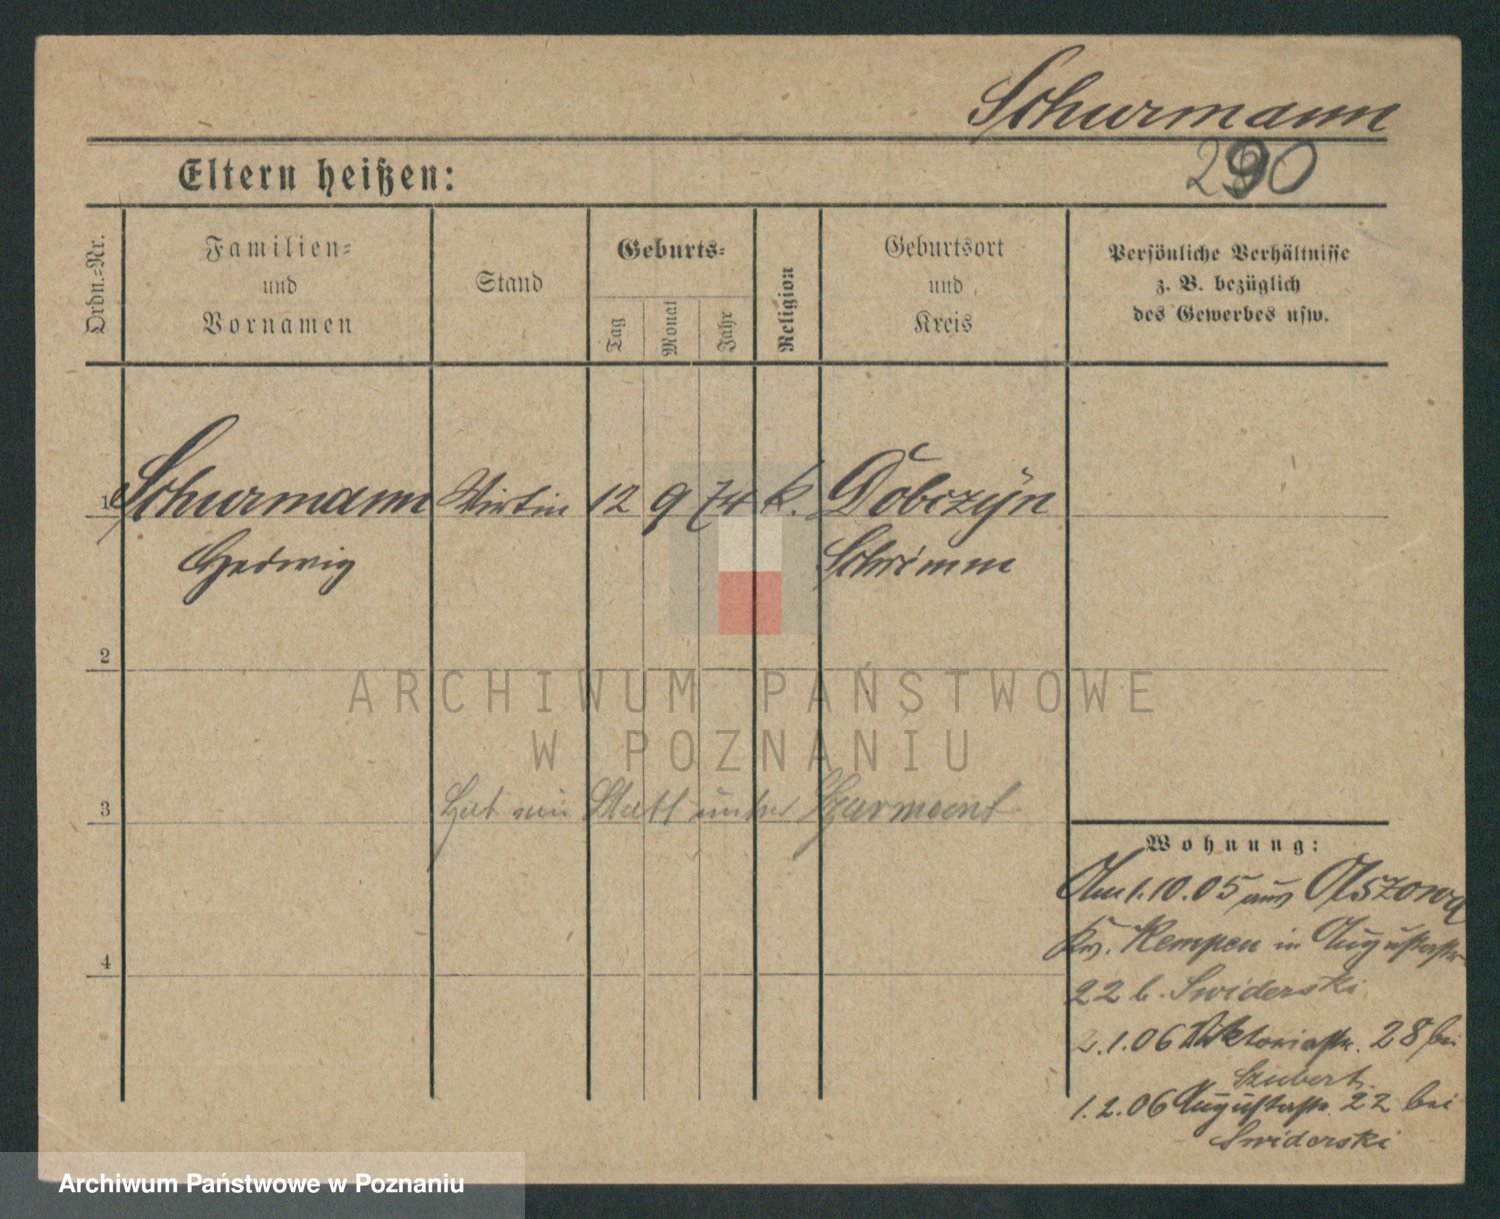 Schurmann
290
Eltern heißen:
Ordn.-Nr.
Familien-
und
Vornamen
Stand
Geburts-
Tag
Monat
Jahr
Religion
Geburtsort
und
Kreis
Persönliche Verhältnisse
z. B. bezüglich
des Gewerbes usw.
1 Schurmann Wirtin 12 9 74 k. Dobczyn
Hedwig Schrimm
2
ARCHIWUM PAŃSTWOWE
W POZNANIU
3 Hat ein Blatt unter
Wohnung:
Am 1.10.05 aus Olszowa
Kr. Kempen in Augustastr.
22 b. Swiderski
2.1.06 Viktoriastr. 28 bei
Szubert
1.2.06 Augustastr. 22 bei
Swiderski
4
Archiwum Państwowe w Poznaniu